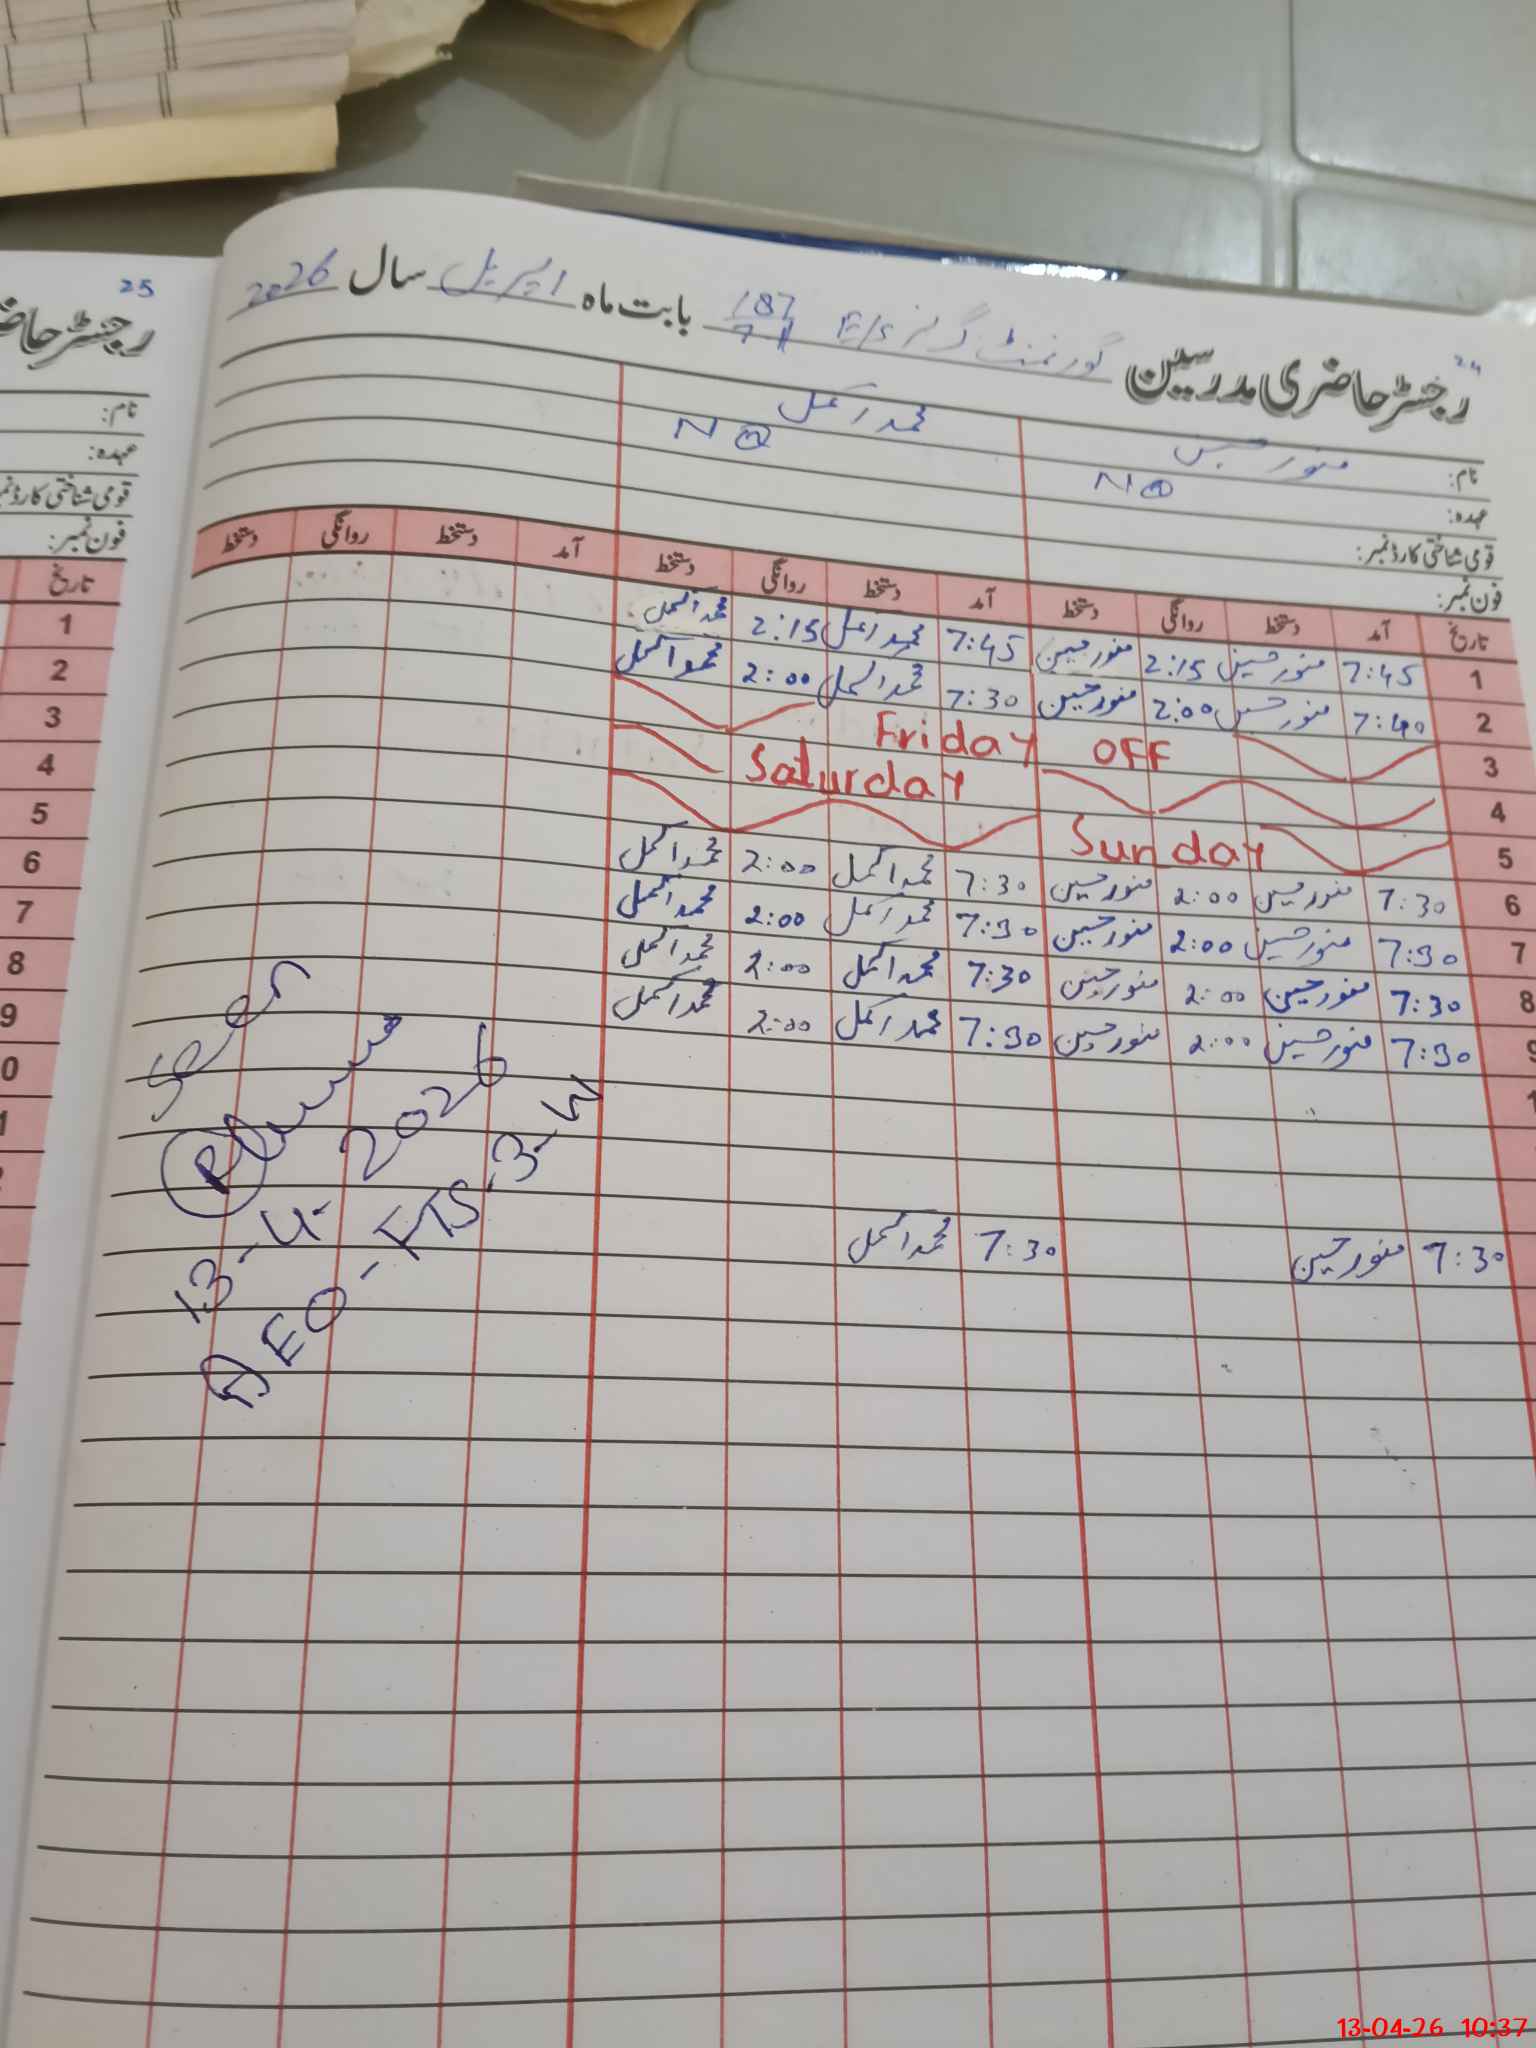 25
رجسٹر حاضر
نام:
عہدہ:
قومی شناختی کارڈ نمبر
فون نمبر:
تاریخ
1
2
3
4
5
6
7
8
9
0
1
24
رجسٹر حاضری مدرسین گورنمنٹ گرلز E/S 187/7 بابت ماہ اپریل سال 2026
نام: منور حسین محمد اکمل
عہدہ: NQ NQ
قومی شناختی کارڈ نمبر:
فون نمبر:
تاریخ آمد دستخط روانگی دستخط آمد دستخط روانگی دستخط آمد دستخط روانگی دستخط
1 7:45 منور حسین 2:15 منور حسین 7:45 محمد اکمل 2:15 محمد اکمل
2 7:40 منور حسین 2:00 منور حسین 7:30 محمد اکمل 2:00 محمد اکمل
3 Friday OFF
4 Saturday
5 Sunday
6 7:30 منور حسین 2:00 منور حسین 7:30 محمد اکمل 2:00 محمد اکمل
7 7:30 منور حسین 2:00 منور حسین 7:30 محمد اکمل 2:00 محمد اکمل
8 7:30 منور حسین 2:00 منور حسین 7:30 محمد اکمل 2:00 محمد اکمل
9 7:30 منور حسین 2:00 منور حسین 7:30 محمد اکمل 2:00 محمد اکمل
1
7:30 منور حسین 7:30 محمد اکمل
Seen
13-4-2026
AEO-FTS-3-W
13-04-26 10:37